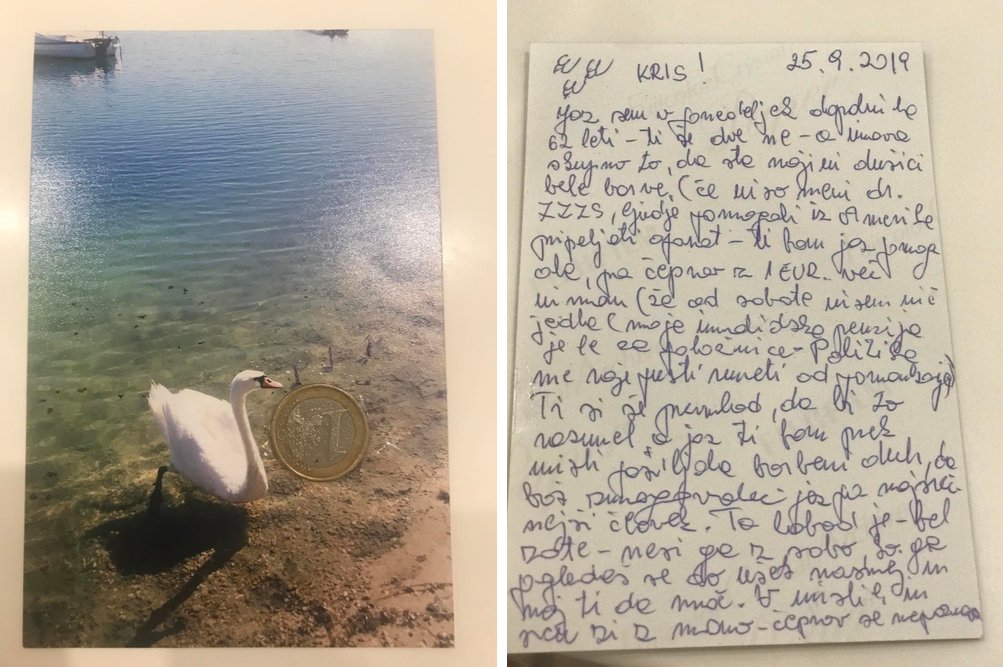 1
KRIS! 25. 9. 2019
Jaz sem v ponedeljek dopolnila
62 leti - ti še dve ne - a imava
skupno to, da sta najini dušici
bele barve. (če niso meni dr.
ZZZS, ljudje pomagali iz Amerike
pripeljati aparat - ti bom jaz pomaga
ola, pa čeprav z 1 EUR. več
nimam (že od sobote nisem nič
jedla (moje invalidska penzija
je le za položnice - Politika
me naj pusti umreti od pomanjkanja)
Ti si še premlad, da bi to
razumel a jaz ti bom prek
misli pošiljala borbeni duh, da
boš zmagovalec jaz pa najsreč
nejši človek. Ta labod je - bel
zate - nesi ga s sabo, ko ga
pogledaš se do ušes nasmej in
naj ti da moč. V mislih in
srcu si z mano - čeprav se nepoznava